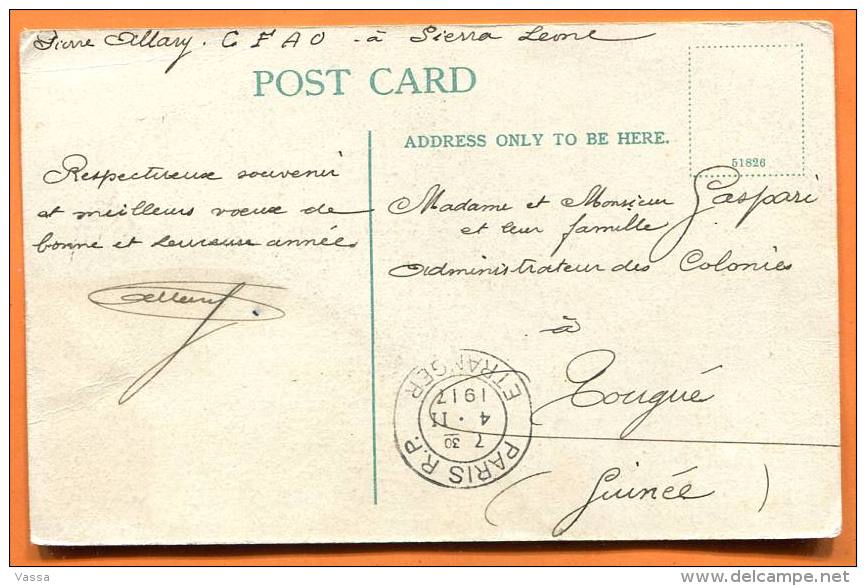 Pierre Allary. C F A O - à Sierra Leone
POST CARD
ADDRESS ONLY TO BE HERE.
51826
Respectueux souvenir
et meilleurs voeux de
bonne et heureuse année
Allary
Madame et Monsieur Gaspari
et leur famille
Administrateur des Colonies
à
Tougué
(Guinée)
PARIS R.P.
7 30
4 · II
1917
ETRANGER
Vassa
delcampe.net